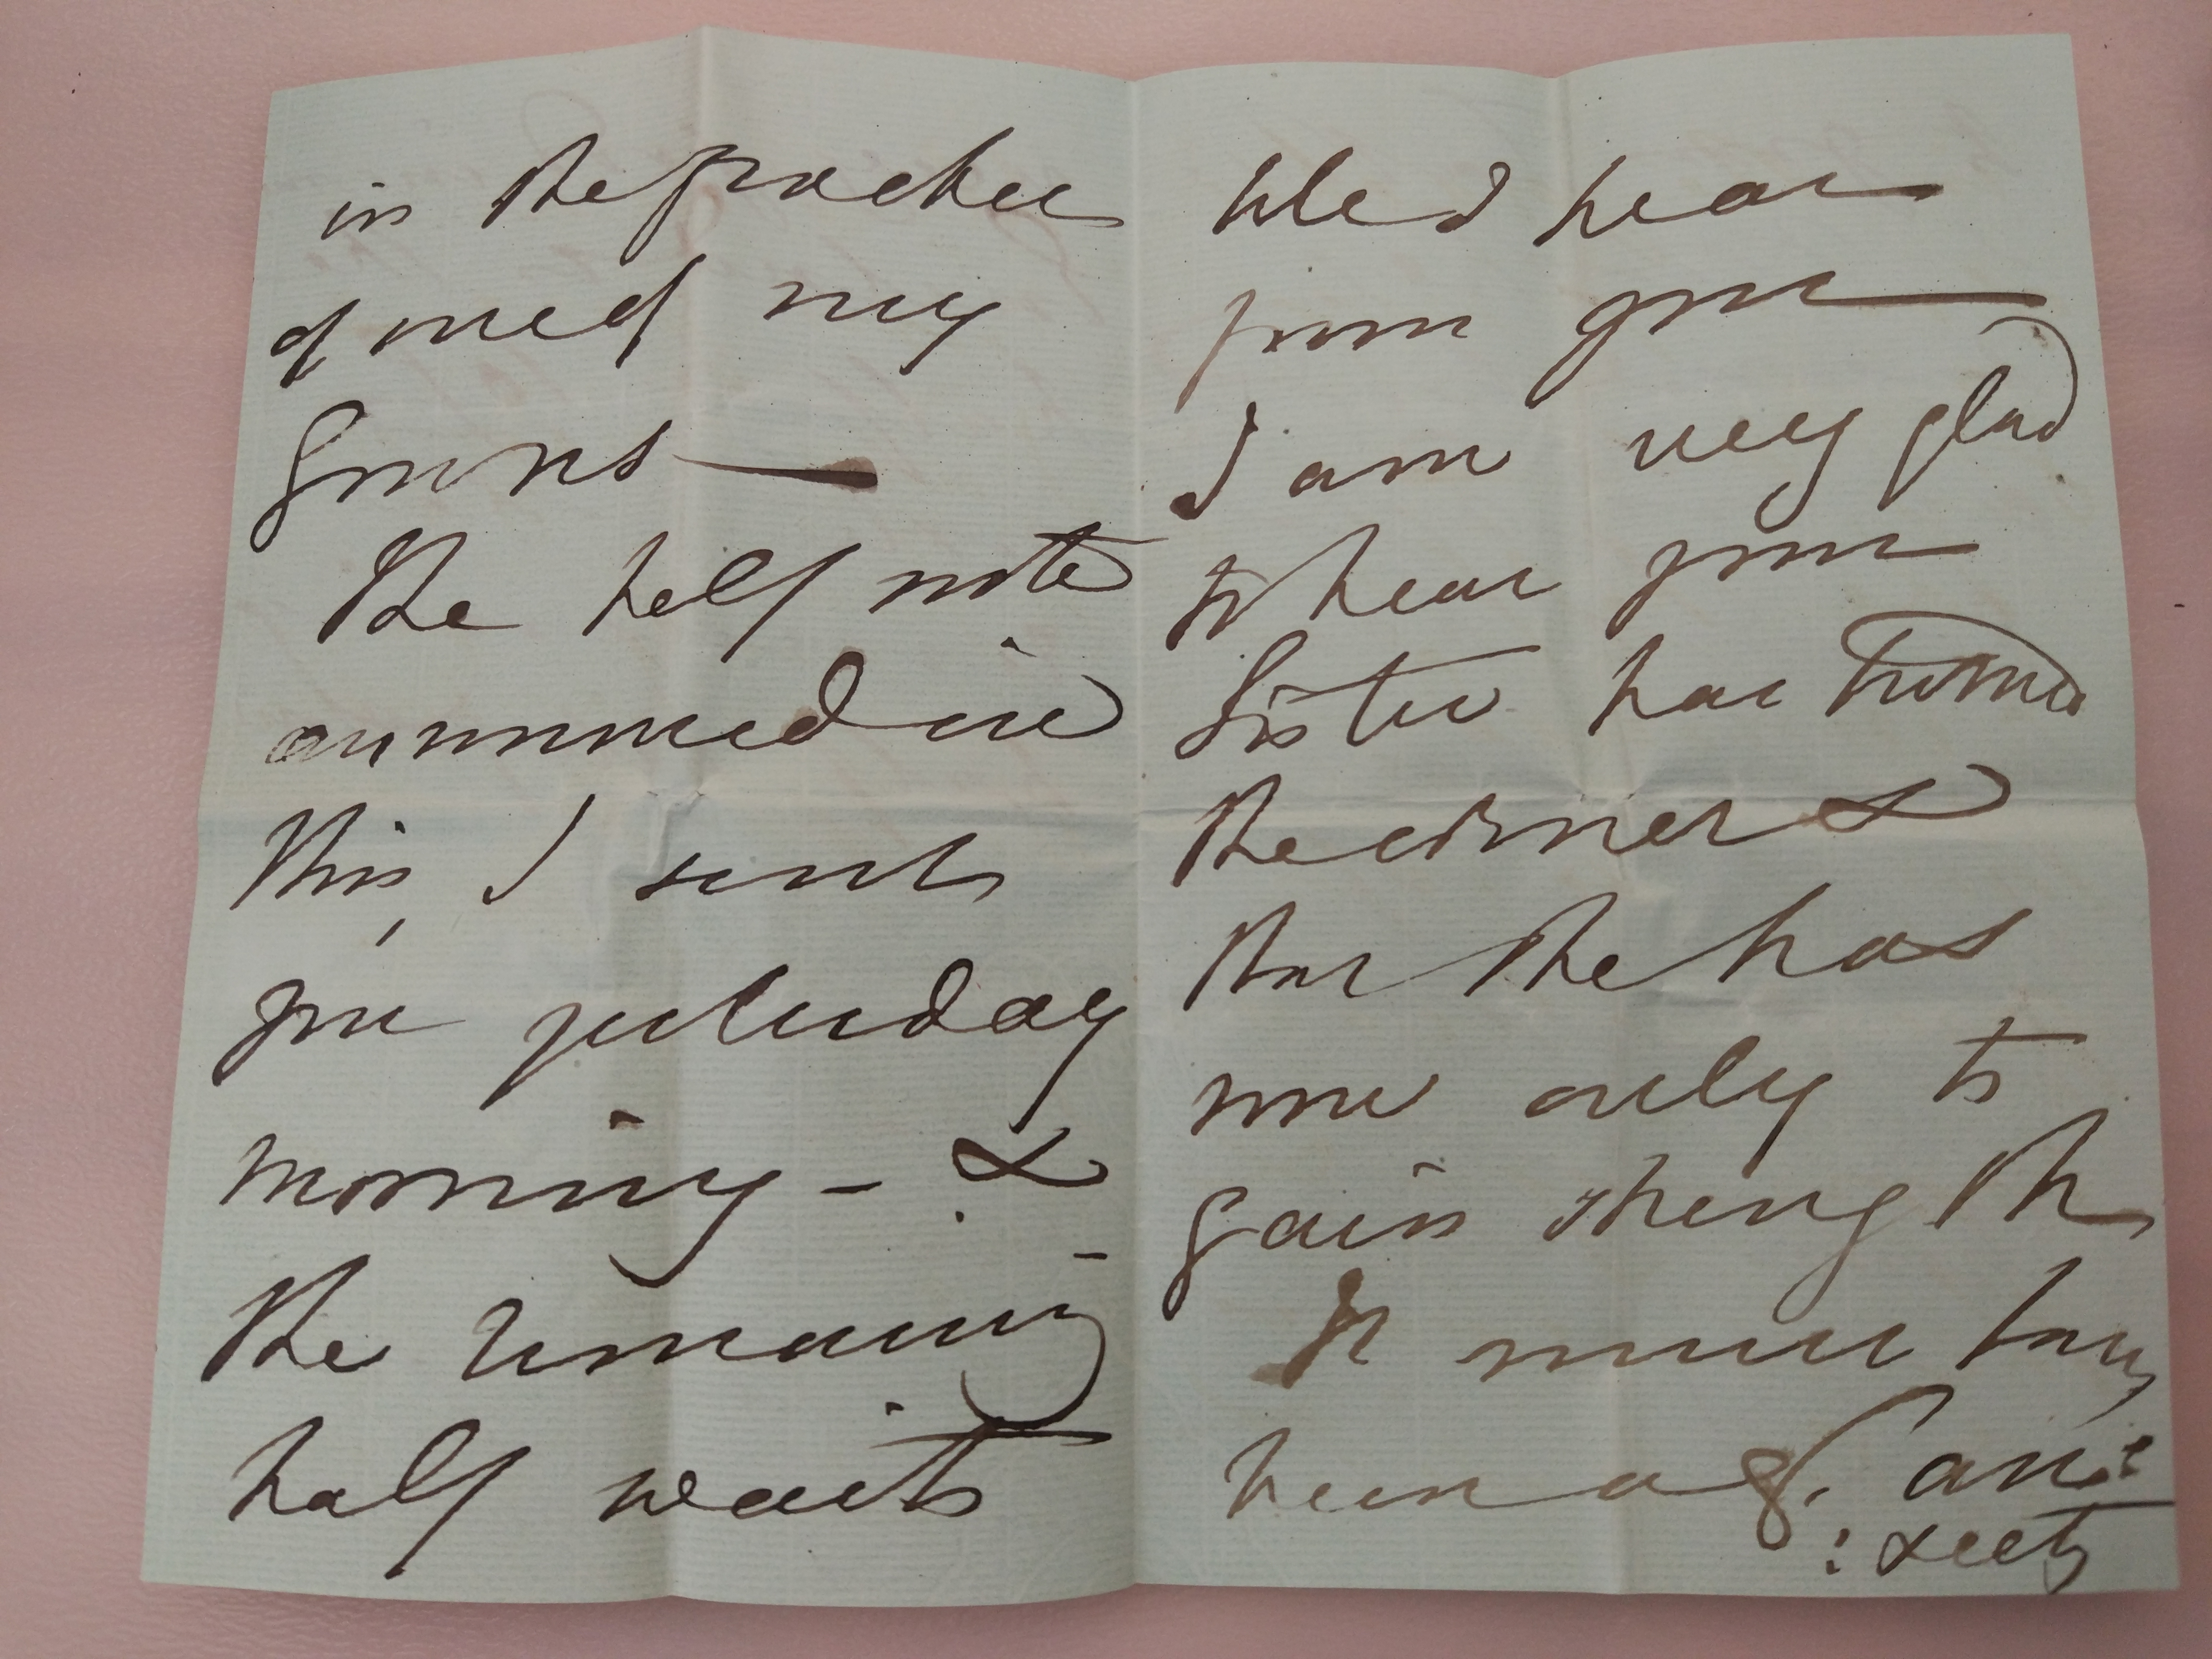 in the pocket
of one of my
Gowns —
The half note
announced in
this, I sent
you yesterday
morning - &
the remaining
half waits
till I hear
from you
I am very glad
to hear your
Sister has turned
the corner &
that she has
now only to
gain strength
It must have
been a gt anx:
:iety